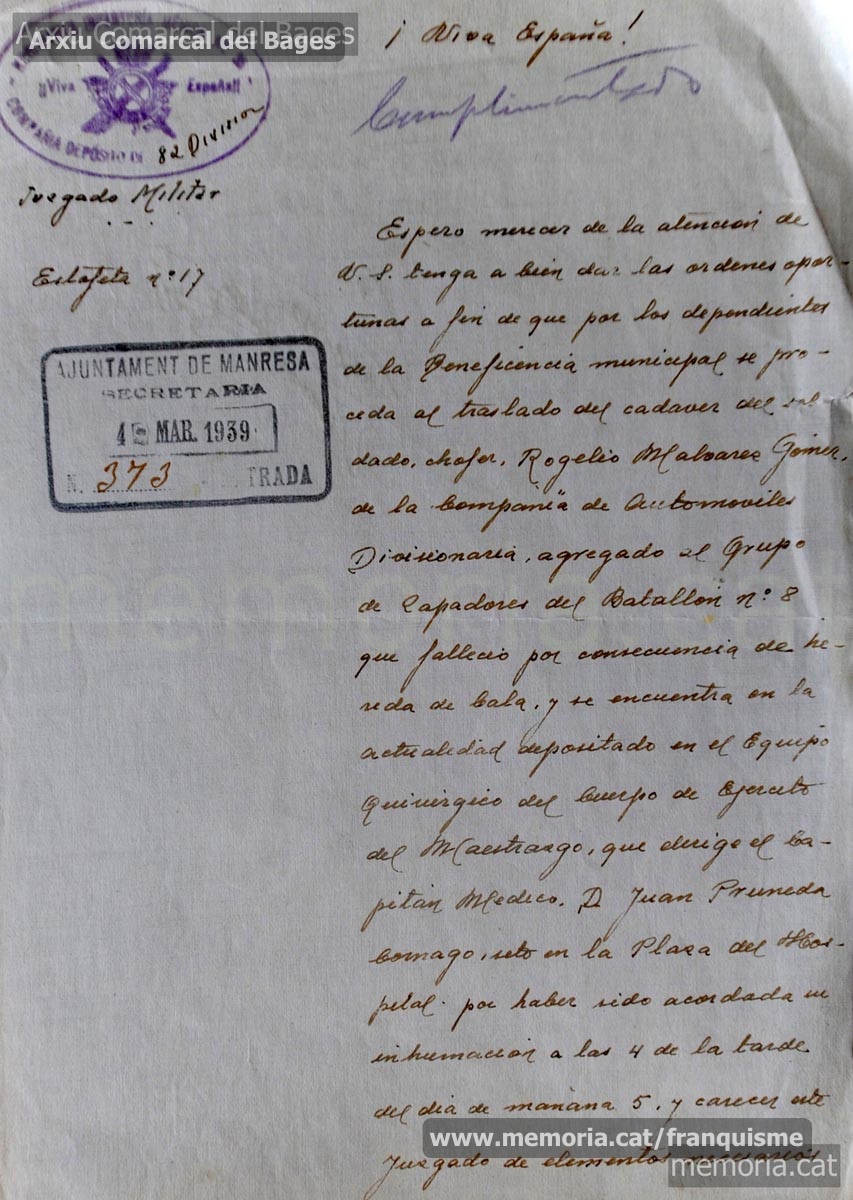 Arxiu Comarcal del Bages
Arxiu Comarcal del Bages
¡¡Viva España!!
COMPAÑIA DEPÓSITO DE 82 Division
¡ Viva España!
Cumplimentado
Juzgado Militar
Estafeta nº 17
AJUNTAMENT DE MANRESA
SECRETARIA
4 MAR. 1939
N. 373 TRADA
Espero merecer de la atención de
V. S. tenga a bien dar las ordenes opor-
tunas a fin de que por los dependientes
de la Beneficencia municipal se pro-
ceda al traslado del cadaver del sol-
dado, chofer, Rogelio Malvarez Gómez,
de la Compañia de Automoviles
Divisionaria, agregado al Grupo
de Zapadores del Batallón nº 8
que fallecio por consecuencia de he-
rida de bala, y se encuentra en la
actualidad depositado en el Equipo
Quirúrgico del Cuerpo de Ejercito
del Maestrazgo, que dirige el Ca-
pitán Medico. D Juan Pruneda
Cornago, sito en la Plaza del Hos-
pital. por haber sido acordada su
inhumación a las 4 de la tarde
del dia de mañana 5, y carecer este
Juzgado de elementos necesarios
www.memoria.cat/franquisme
memoria.cat